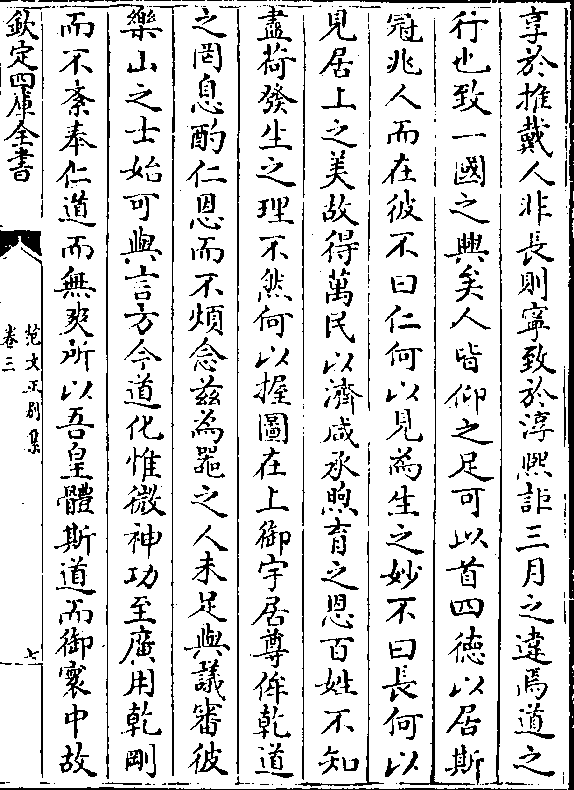 享於推戴人非長則寧致於淳熙詎三月之違焉道之
行也致一國之興矣人皆仰之足可以首四徳以居斯
冠兆人而在彼不曰仁何以見為生之妙不曰長何以
見居上之美故得萬民以濟咸承煦育之恩百姓不知
盡荷發生之理不然何以握圖在上御宇居尊侔乾道
之罔息酌仁恩而不煩念兹為器之人未足與議審彼
樂山之士始可與言方今道化惟微神功至廣用乾剛
而不紊奉仁道而無爽所以吾皇體斯道而御寰中故
欽定四庫全書
范文正别集
卷三
七